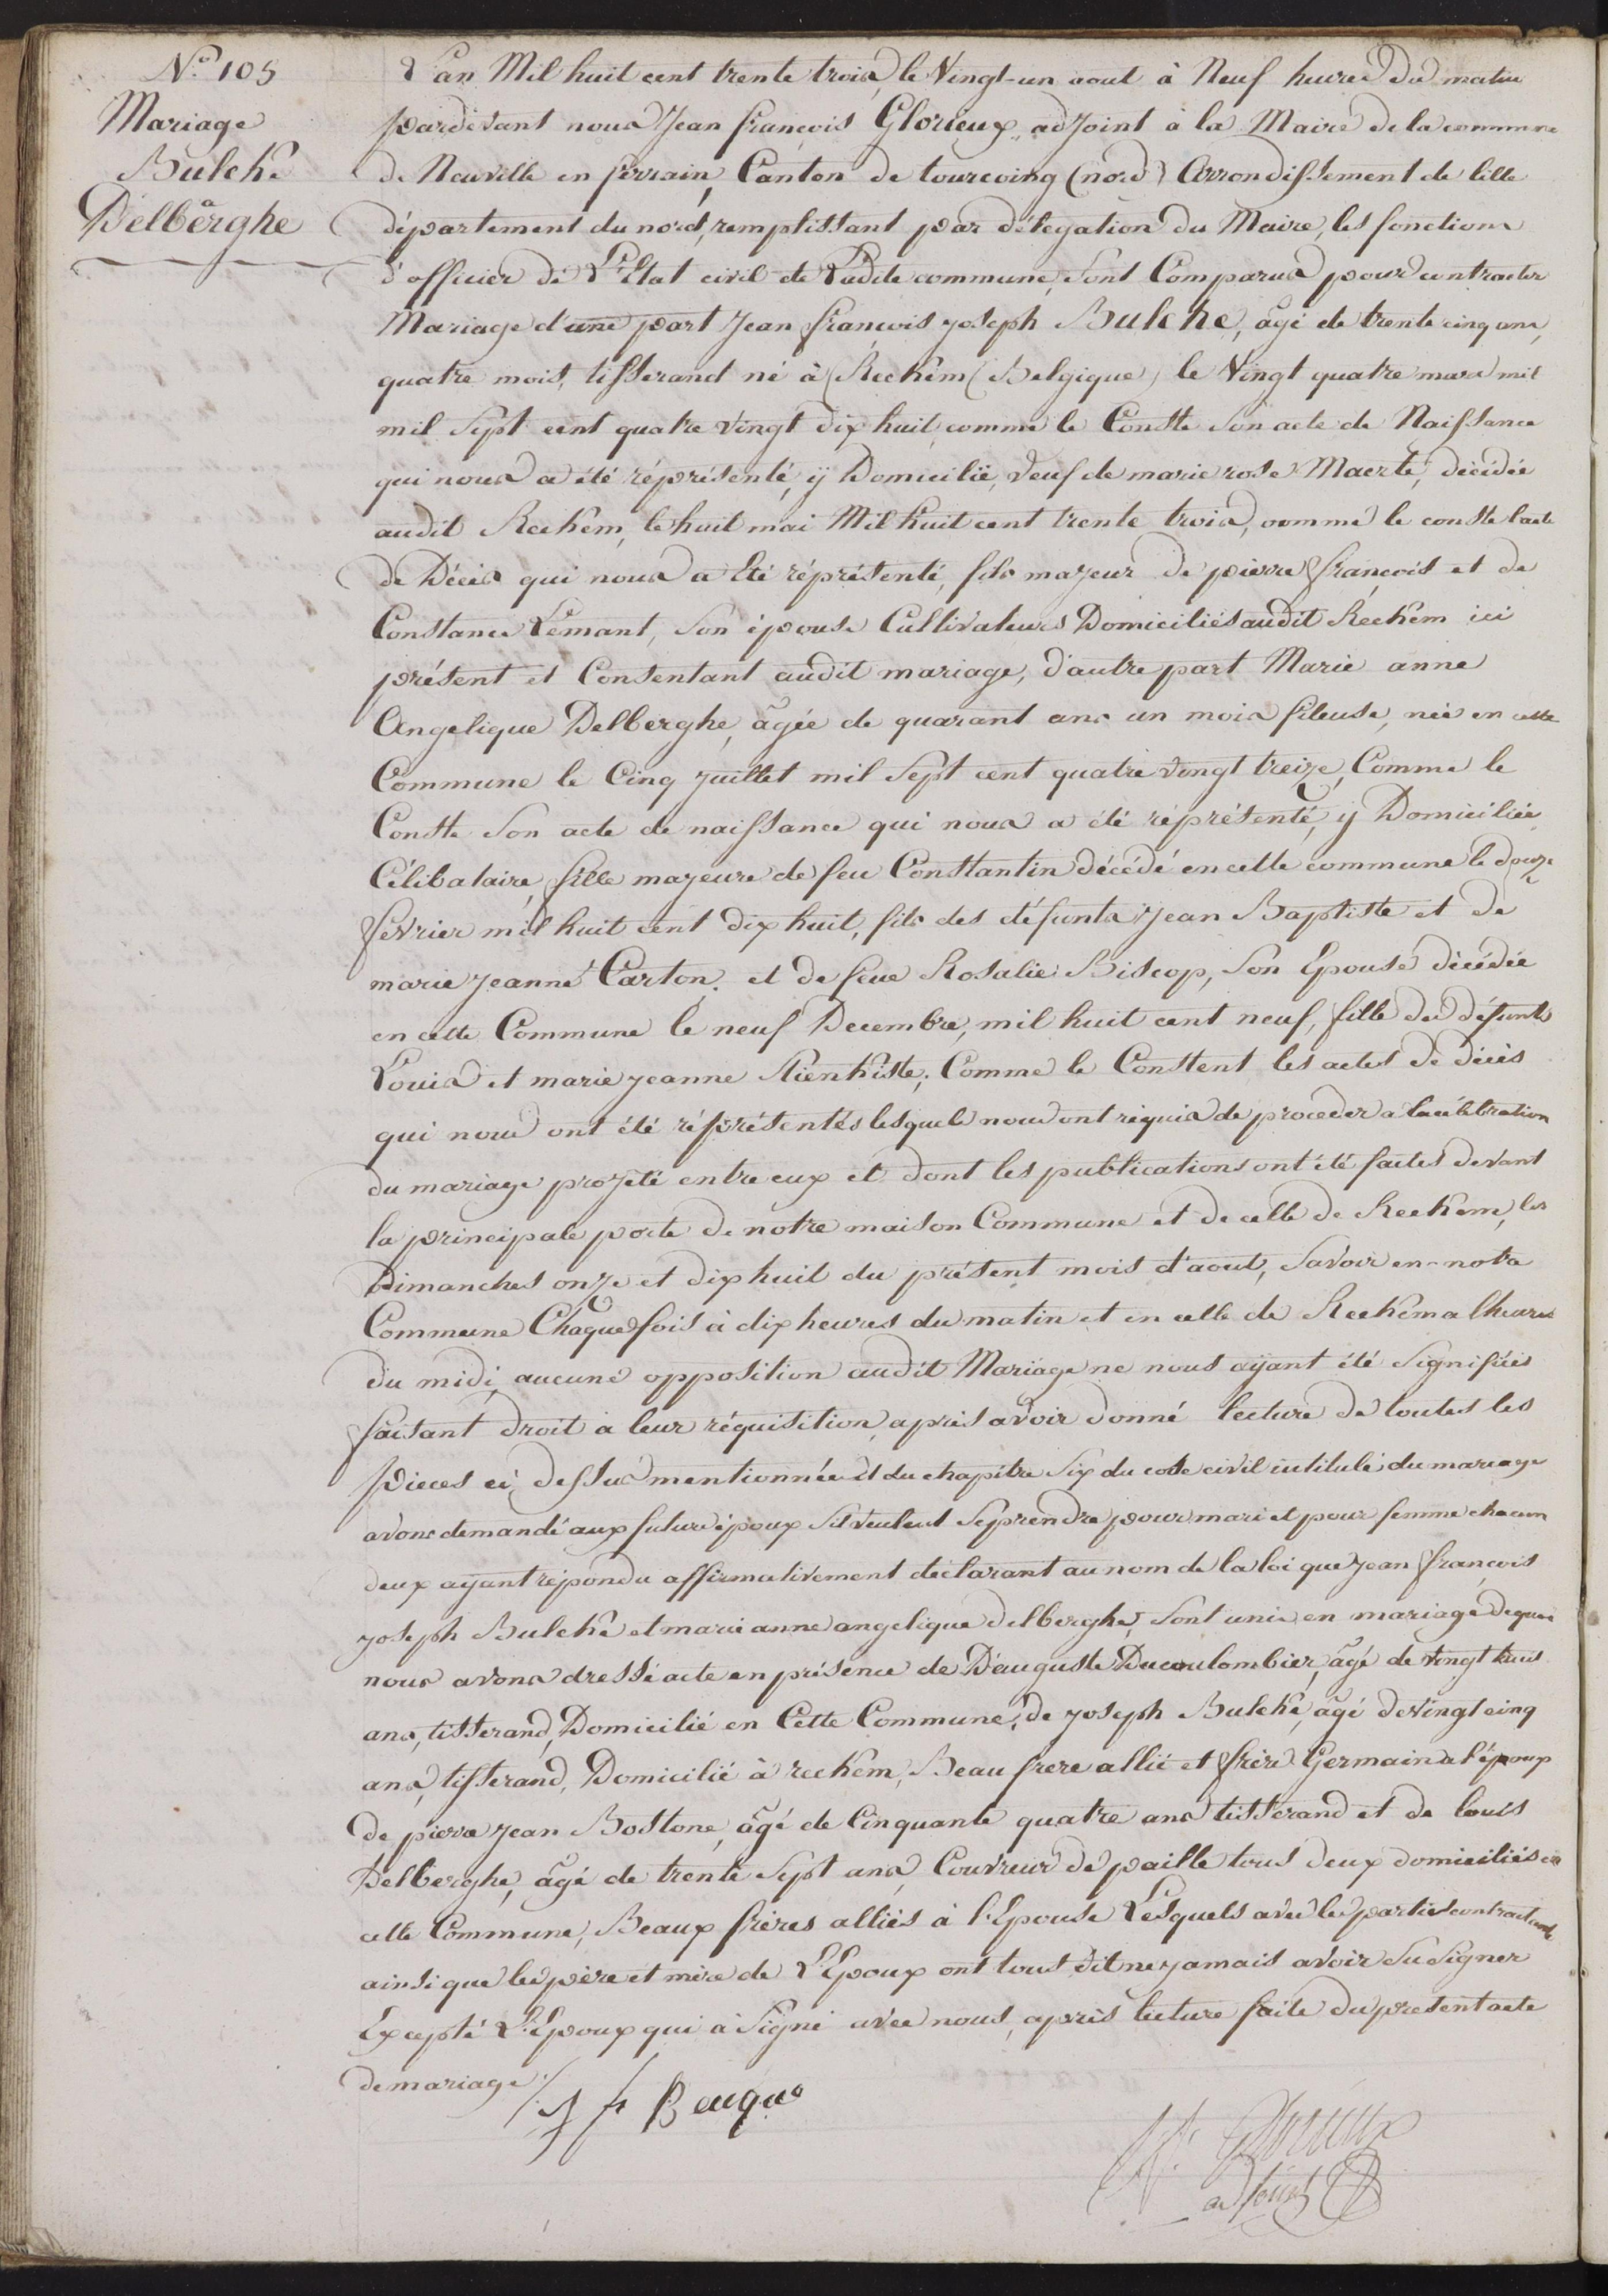 N.° 105
Mariage
Bulcke
Delberghe
L'an Mil huit cent trente trois, le Vingt-un aout à Neuf heures du matin
pardevant nous Jean françois Glorieux, adjoint à la Mairé de la commune
de Neuville en ferrain, Canton de tourcoing (nord) Arrondissement de lille
département du nord, remplissant par délégation du Maire, les fonctions
d'officier de L'Etat civil de Ladite commune, Sont Comparus pour contracter
Mariage d'une part Jean françois joseph Bulcke, âgé de trente cinq ans,
quatre mois, tisserand né à Reckem (Belgique) le Vingt quatre mars mil
mil Sept cent quatre vingt dix huit, comme le Conste Son acte de Naissance
qui nous a été réprésenté, ÿ Domicilié, Veuf de marie rose Maerte, décédée
audit Reckem, le huit mai Mil huit cent trente trois, comme le conste l'acte
de Décès qui nous a Eté réprésenté, fils majeur de pierre françois et de
Constance Lemant, Son épouse Cultivateurs Domiciliés audit Reckem ici
présent et Consentant audit mariage, d'autre part Marie anne
Angelique Delberghe, âgée de quarant ans un mois fileuse, née en cette
Commune le Cinq juillet mil Sept cent quatre vingt treize, Comme le
Conste Son acte de naissance qui nous a été réprésenté, ÿ Domiciliée
Célibataire, fille majeure de feu Constantin décédé en cette commune le douze
fevrier mil huit cent dix huit, fils des défunts Jean Baptiste et de
marie jeanne Carton, et de feue Rosalie Biscop, Son Epouse décédée
en cette Commune le neuf Decembre, mil huit cent neuf, fille des défunts
Louis et marie jeanne Rienkiste, Comme le Constent les actes de décès
qui nous ont été réprésentés lesquels nous ont réquis de proceder a la célébration
du mariage projeté entre eux et dont les publications ont été faites devant
la principale porte de notre maison Commune et de celle de Reckem, les
Dimanches onze et dix huit du présent mois d'aout, Savoir en notre
Commune Chaque fois à dix heures du matin et en celle de Reckem a lheures
du midi, aucune opposition audit Mariage ne nous ayant été Signifiées
faisant droit à leur réquisition, après avoir donné lecture de toutes les
pieces ci dessus mentionnées et du chapitre Six du code civil intitulé du mariage
avons demandé aux futurs époux Sil veulent Seprendre pour mari et pour femme chacun
deux ayant répondu affirmativement declarant au nom de la loi que jean françois
joseph Bulcke et marie anne angelique delberghe, Sont unis en mariage dequoi
nous avons dressé acte en présence de D'auguste Ducoulombier, âgé de vingt huit
ans, tisserand, Domicilié en Cette Commune, de joseph Bulcke, âgé de Vingt cinq
ans, tisserand, Domicilié à reckem, Beau frere allié et frère Germain a l'époux
de pierre jean Bostone, âgé de Cinquante quatre ans tisserand et de louis
Delberghe, âgé de trente Sept ans, Couvreur de paille tous deux domiciliés en
cette Commune, Beaux frères alliés à l'Epouse Lesquels avec les parties contractantes
ainsi que les père et mère de L'Epoux ont tous dit ne jamais avoir Su Signer
Excepté L'Epoux qui à Signé avec nous, après lecture faite du present acte
de mariage ./.
J f Beuque
Jf. Glorieux
adjoint